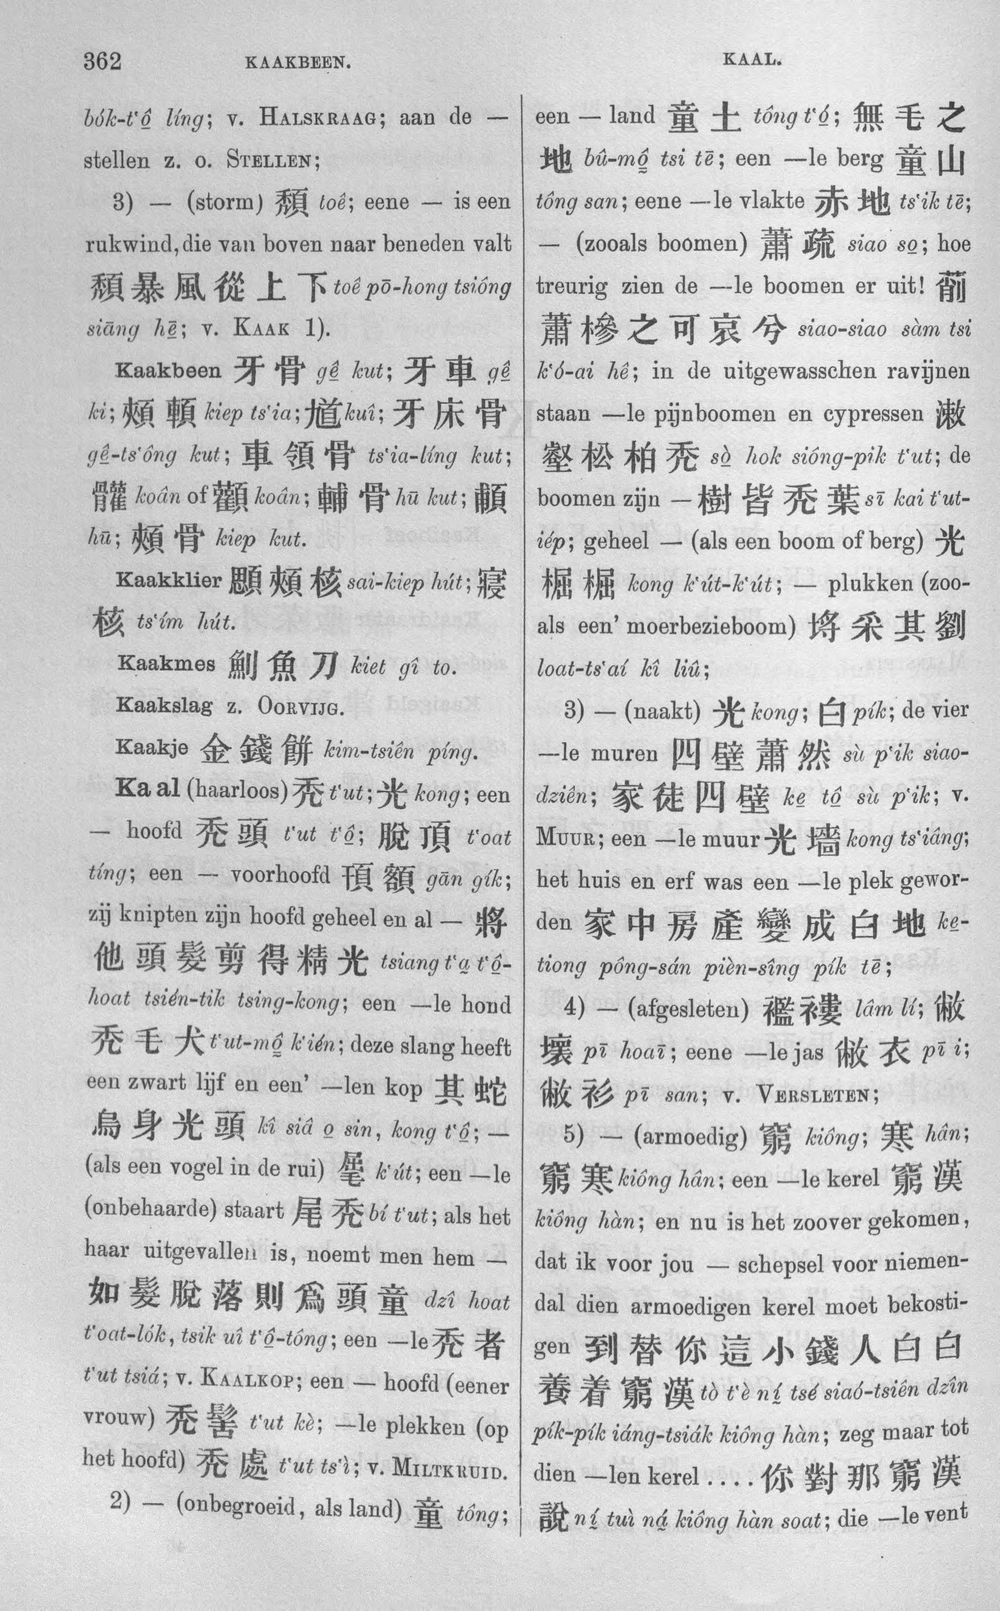 362 KAAKBEEN. KAAL.
bók-t'ô̱ líng; v. HALSKRAAG; aan de —
stellen z. o. STELLEN;
3) — (storm) 頹 toê; eene — is een
rukwind, die van boven naar beneden valt
頹暴風從上下 toê pō-hong tsióng
siāng hē̱; v. KAAK 1).
Kaakbeen 牙骨 gê̱ kut; 牙車 gê̱
ki; 頰 kiep ts'ia; kuî; 牙床骨
gê̱-ts'ông kut; 車領骨 ts'ia-líng kut;
koân of 顴 koân; 輔骨 hū kut; 䩉
hū; 頰骨 kiep kut.
Kaakklier 顋頰核 sai-kiep hút; 寢
核 ts'ím hút.
Kaakmes 魚刀 kiet gî to.
Kaakslag z. OORVIJG.
Kaakje 金錢餅 kim-tsiên píng.
Kaal (haarloos) 禿 t'ut; 光 kong; een
— hoofd 禿頭 t'ut t'ô̱; 脫頂 t'oat
tíng; een — voorhoofd 額 gān gík;
zij knipten zijn hoofd geheel en al — 將
他頭髮剪得精光 tsiang t'a̱ t'ô̱-
hoat tsién-tik tsing-kong; een —le hond
禿毛犬 t'ut-mô̱ k'ién; deze slang heeft
een zwart lijf en een' —len kop 其蛇
烏身光頭 kî siâ o̱ sin, kong t'ô̱; —
(als een vogel in de rui) k'út; een —le
(onbehaarde) staart 尾禿 bí t'ut; als het
haar uitgevallen is, noemt men hem —
如髮脫落則爲頭童 dzî hoat
t'oat-lók, tsik uî t'ô̱-tông; een —le 禿者
t'ut tsiá; v. KAALKOP; een — hoofd (eener
vrouw) 禿髻 t'ut kè; —le plekken (op
het hoofd) 禿處 t'ut ts'ì; v. MILTKRUID.
2) — (onbegroeid, als land) 童 tông;
een — land 童土 tông t'ó̱; 無毛之
地 bû-mô̱ tsi tē; een —le berg 童山
tông san; eene —le vlakte 赤地 ts'ik tē;
— (zooals boomen) 蕭疏 siao so̱; hoe
treurig zien de —le boomen er uit! 萷
蕭槮之可哀兮 siao-siao sàm tsi
k'ó-ai hê; in de uitgewasschen ravijnen
staan —le pijnboomen en cypressen 漱
壑松柏禿 sò̱ hok sióng-pik t'ut; de
boomen zijn — 樹皆禿葉 sī kai t'ut-
iép; geheel — (als een boom of berg) 光
𣔻 kong k'út-k'út; — plukken (zoo-
als een' moerbezieboom) 捋采其劉
loat-ts'aí kî liû;
3) — (naakt) 光 kong; 白 pík; de vier
—le muren 四壁蕭然 sù p'ik siao-
dziên; 家徒四壁 ke̱ tô̱ sù p'ik; v.
MUUR; een —le muur 光墻 kong ts'iâng;
het huis en erf was een —le plek gewor-
den 家中房產變成白地 ke̱-
tiong pông-sán pièn-sîng pík tē;
4) — (afgesleten) 襤褸 lâm lí; 敝
壞 pī hoaī; eene —le jas 敝衣 pī i;
敝衫 pī san; v. VERSLETEN;
5) — (armoedig) 窮 kiông; 寒 hân;
窮寒 kiông hân; een —le kerel 窮漢
kiông hàn; en nu is het zoover gekomen,
dat ik voor jou — schepsel voor niemen-
dal dien armoedigen kerel moet bekosti-
gen 到替你這小錢人白白
養着窮漢 tò t'è ní̱ tsé siaó-tsiên dzîn
pík-pík iáng-tsiák kiông hàn; zeg maar tot
dien —len kerel .... 你對那窮漢
說 ní̱ tuì ná̱ kiông hàn soat; die —le vent